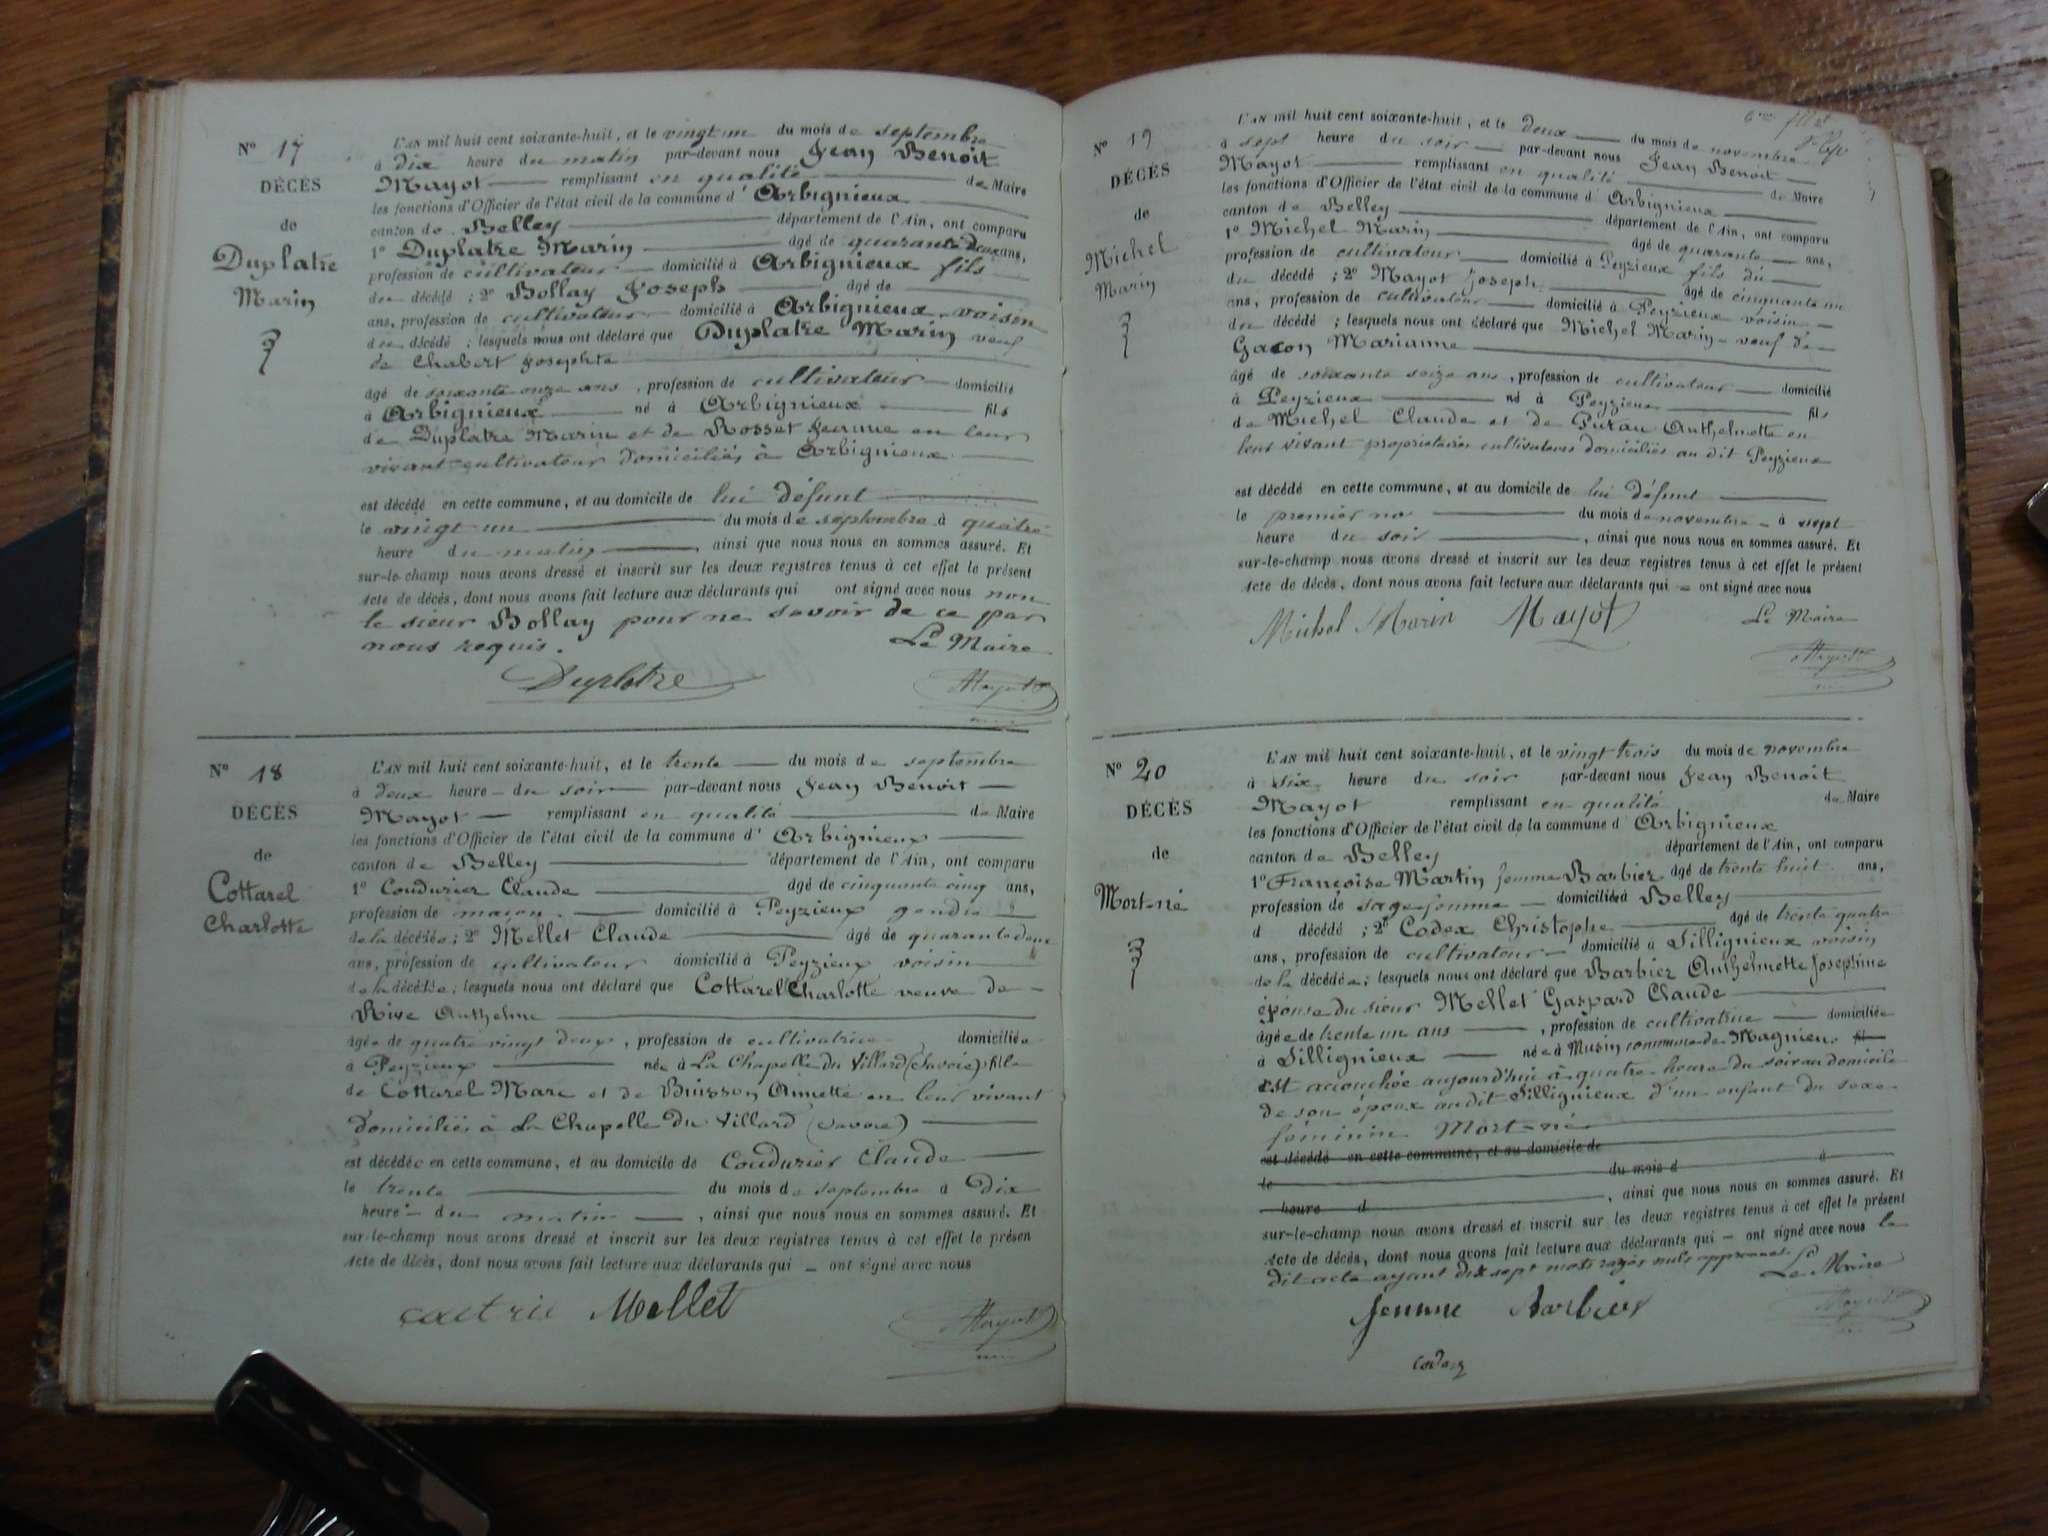 N° 17
DÉCÈS
de
Duplatre
Marin
L'AN mil huit cent soixante-huit, et le vingt un du mois de septembre
à dix heure du matin par-devant nous Jean Benoit
Mayot remplissant en qualité de Maire
les fonctions d'Officier de l'état civil de la commune d' Arbignieux
canton de Belley département de l'Ain, ont comparu
1° Duplatre Marin âgé de quarante deux ans,
profession de cultivateur domicilié à Arbignieux fils
du décédé ; 2° Bollay Joseph âgé de
ans, profession de cultivateur domicilié à Arbignieux voisin
du décédé ; lesquels nous ont déclaré que Duplatre Marin veuf
de Chabert Josephte
âgé de soixante onze ans, profession de cultivateur domicilié
à Arbignieux né à Arbignieux fils
de Duplatre Marin et de Rosset Jeanne en leur
vivant cultivateur domiciliés à Arbignieux
est décédé en cette commune, et au domicile de lui défunt
le vingt un du mois de septembre à quatre
heure du matin, ainsi que nous nous en sommes assuré. Et
sur-le-champ nous avons dressé et inscrit sur les deux registres tenus à cet effet le présent
Acte de décès, dont nous avons fait lecture aux déclarants qui ont signé avec nous non
le sieur Bollay pour ne savoir de ce par
nous requis. Le Maire
Duplatre Mayot
N° 18
DÉCÈS
de
Cottarel
Charlotte
L'AN mil huit cent soixante-huit, et le trente du mois de septembre
à deux heure du soir par-devant nous Jean Benoit
Mayot remplissant en qualité de Maire
les fonctions d'Officier de l'état civil de la commune d' Arbignieux
canton de Belley département de l'Ain, ont comparu
1° Coudurier Claude âgé de cinquante cinq ans,
profession de maçon domicilié à Peyzieux gendre
de la décédée ; 2° Mellet Claude âgé de quarante deux
ans, profession de cultivateur domicilié à Peyzieux voisin
de la décédée ; lesquels nous ont déclaré que Cottarel Charlotte veuve de
Rive Anthelme
âgée de quatre vingt deux, profession de cultivatrice domiciliée
à Peyzieux née à La Chapelle du Villard (Savoie) fille
de Cottarel Marc et de Buisson Annette en leur vivant
domiciliés à La Chapelle du Villard (Savoie)
est décédée en cette commune, et au domicile de Coudurier Claude
le trente du mois de septembre à Dix
heure du matin, ainsi que nous nous en sommes assuré. Et
sur-le-champ nous avons dressé et inscrit sur les deux registres tenus à cet effet le présen
Acte de décès, dont nous avons fait lecture aux déclarants qui ont signé avec nous
Mellet Mayot
N° 19
DÉCÈS
de
Michel
Marin
L'AN mil huit cent soixante-huit, et le deux du mois de novembre
à sept heure du soir par-devant nous Jean Benoit
Mayot remplissant en qualité de Maire
les fonctions d'Officier de l'état civil de la commune d' Arbignieux
canton de Belley département de l'Ain, ont comparu
1° Michel Marin âgé de quarante ans,
profession de cultivateur domicilié à Peyzieux fils du
du décédé ; 2° Mayot Joseph âgé de cinquante un
ans, profession de cultivateur domicilié à Peyzieux voisin
du décédé ; lesquels nous ont déclaré que Michel Marin veuf de
Gacon Marianne
âgé de soixante seize ans, profession de cultivateur domicilié
à Peyzieux né à Peyzieux fils
de Michel Claude et de Anthelmette en
leur vivant propriétaires cultivateurs domiciliés au dit Peyzieux
est décédé en cette commune, et au domicile de lui défunt
le premier no du mois de novembre à sept
heure du soir, ainsi que nous nous en sommes assuré. Et
sur-le-champ nous avons dressé et inscrit sur les deux registres tenus à cet effet le présent
Acte de décès, dont nous avons fait lecture aux déclarants qui ont signé avec nous
Michel Marin Mayot Le Maire
Mayot
N° 20
DÉCÈS
de
Mort-né
L'AN mil huit cent soixante-huit, et le vingt trois du mois de novembre
à six heure du soir par-devant nous Jean Benoit
Mayot remplissant en qualité de Maire
les fonctions d'Officier de l'état civil de la commune d' Arbignieux
canton de Belley département de l'Ain, ont comparu
1° Françoise Martin femme Barbier âgé de trente huit ans,
profession de sage femme domiciliée à Belley
d décédé ; 2° Codex Christophe âgé de trente quatre
ans, profession de cultivateur domicilié à Sillignieux voisin
de la décédée ; lesquels nous ont déclaré que Barbier Anthelmette Josephine
épouse du sieur Mellet Gaspard Claude
âgée de trente un ans, profession de cultivatrice domiciliée
à Sillignieux née à Musin commune de Magnieu fil
est accouchée aujourd'hui à quatre heure du soir au domicile
de son époux audit Sillignieux d'un enfant du sexe
féminin Mort-né
est décédé en cette commune, et au domicile de
le du mois d à
heure d, ainsi que nous nous en sommes assuré. Et
sur-le-champ nous avons dressé et inscrit sur les deux registres tenus à cet effet le présent
Acte de décès, dont nous avons fait lecture aux déclarants qui ont signé avec nous le
dit acte ayant dix sept mots rayés nuls approuvés. Le Maire
femme Barbier Mayot
Codex